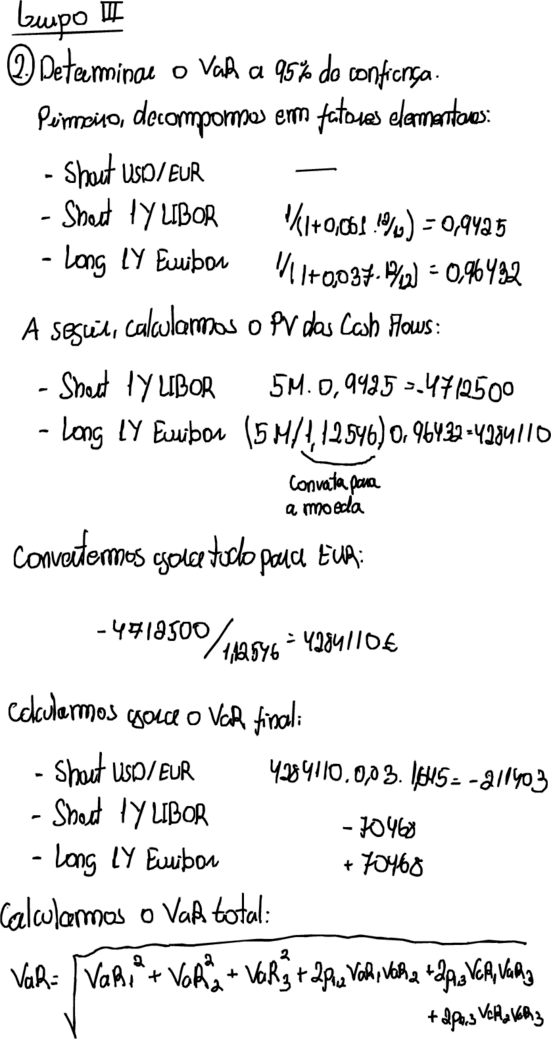 Grupo III
2. Determinar o VaR a 95% de confiança.
Primeiro, decompormos em fatores elementares:
- Short USD/EUR —
- Short 1Y LIBOR 1/(1+0,061.12/12) = 0,9425
- Long 1Y Euribor 1/(1+0,037.12/12) = 0,96432
A seguir, calcularmos o PV dos Cash Flows:
- Short 1Y LIBOR 5M.0,9425 = -4712500
- Long 1Y Euribor (5M/1,12546)0,96432=4284110
Converta para
a moeda
Convertermos agora tudo para EUR:
-4712500/1,12546 = 4284110€
Calcularmos agora o VaR final:
- Short USD/EUR 4284110.0,03.1,645 = -211403
- Short 1Y LIBOR -70468
- Long 1Y Euribor +70468
Calcularmos o VaR total:
VaR = √VaR₁² + VaR₂² + VaR₃² + 2ρ₁,₂ VaR₁ VaR₂ + 2ρ₁,₃ VaR₁ VaR₃
+ 2ρ₂,₃ VaR₂ VaR₃